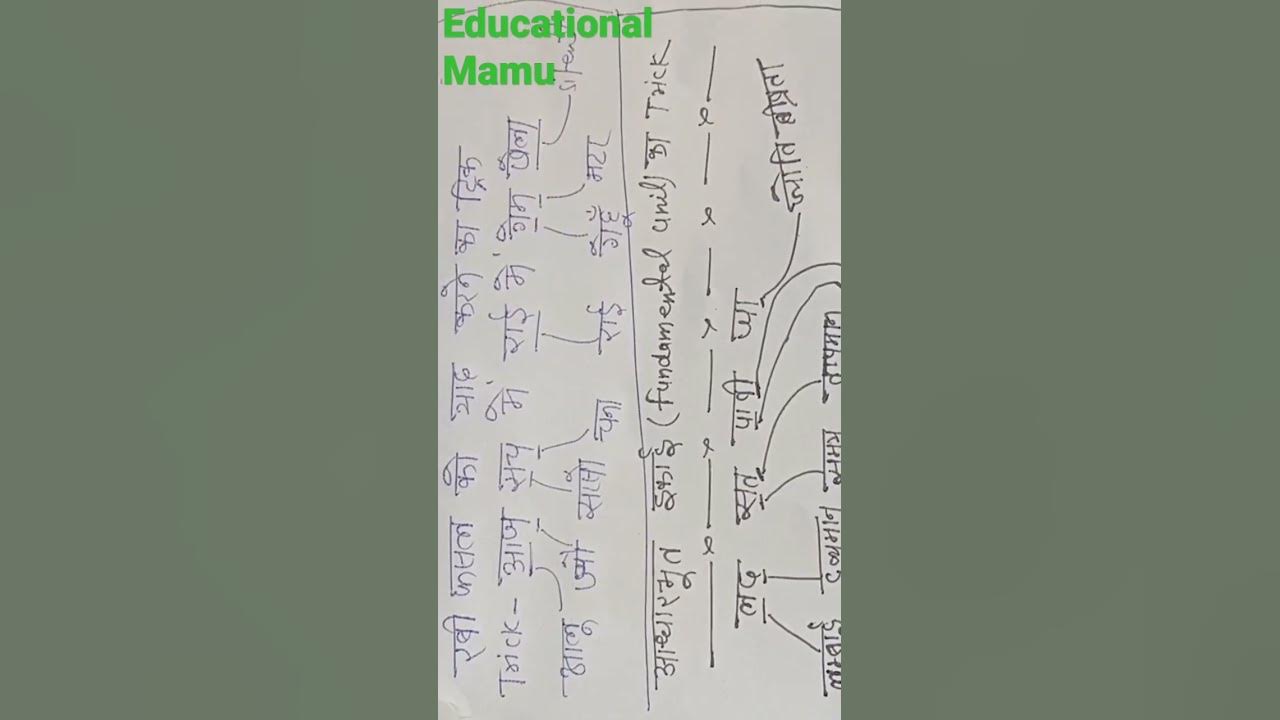 Educational
Mamu
रबी फसल को याद करने का ट्रिक
Trick - आज सच में राई में गेम खेला
silent
आलु जौ सरसों चना राई गेहूँ मटर
आधारभूत इकाई (fundamental unit) का Trick
लद सतँ पाप ज्या
ज्योति तीव्रता
लम्बाई द्रव्यमान समय तापमान